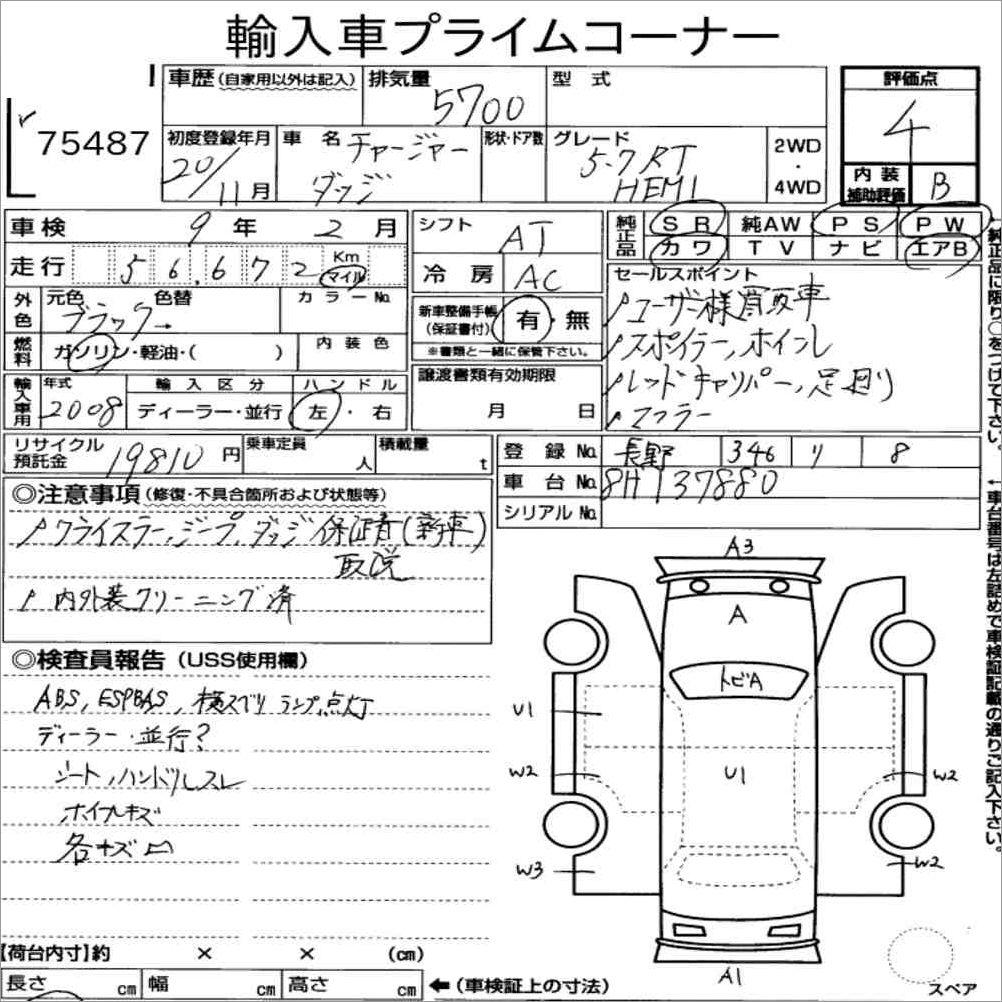 輸入車プライムコーナー
75487
車歴(自家用以外は記入) 排気量 5700 型式
評価点 4
初度登録年月 20/11月 車名 チャージャー ダッジ 形状・ドア数 グレード 5.7RT HEMI 2WD・4WD
内装補助評価 B
車検 9年 2月
走行 56,672 Km マイル
外色 元色 ブラック→ 色替 カラーNo.
燃料 ガソリン・軽油・( ) 内装色
輸入車用 年式 2008 輸入区分 ディーラー・並行 ハンドル 左・右
リサイクル預託金 19810円 乗車定員 人 積載量 t
シフト AT
冷房 AC
新車整備手帳(保証書付) 有・無
※書類と一緒に保管下さい。
譲渡書類有効期限
月 日
純正品 SR 純AW PS PW
カワ TV ナビ エアB
セールスポイント
ユーザー様買取車
スポイラー,ホイル
レッドキャリパー,足廻り
マフラー
登録No. 長野 346 リ 8
車台No. 8H137880
シリアルNo.
↑純正品に限り○をつけて下さい。
↑車台番号は左詰めで車検証記載の通りご記入下さい。
◎注意事項(修復・不具合箇所および状態等)
クライスラー,ジープ,ダッジ 保証書(新車)
取説
内外装クリーニング済
◎検査員報告(USS使用欄)
ABS,ESPBAS,横スベリランプ点灯
ディーラー・並行?
シート,ハンドルスレ
ホイールキズ
各キズ凹
A3
A
トビA
U1
U1
W2
W2
W3
W2
A1
スペア
【荷台内寸】約 × × (cm)
長さ cm 幅 cm 高さ cm ←(車検証上の寸法)